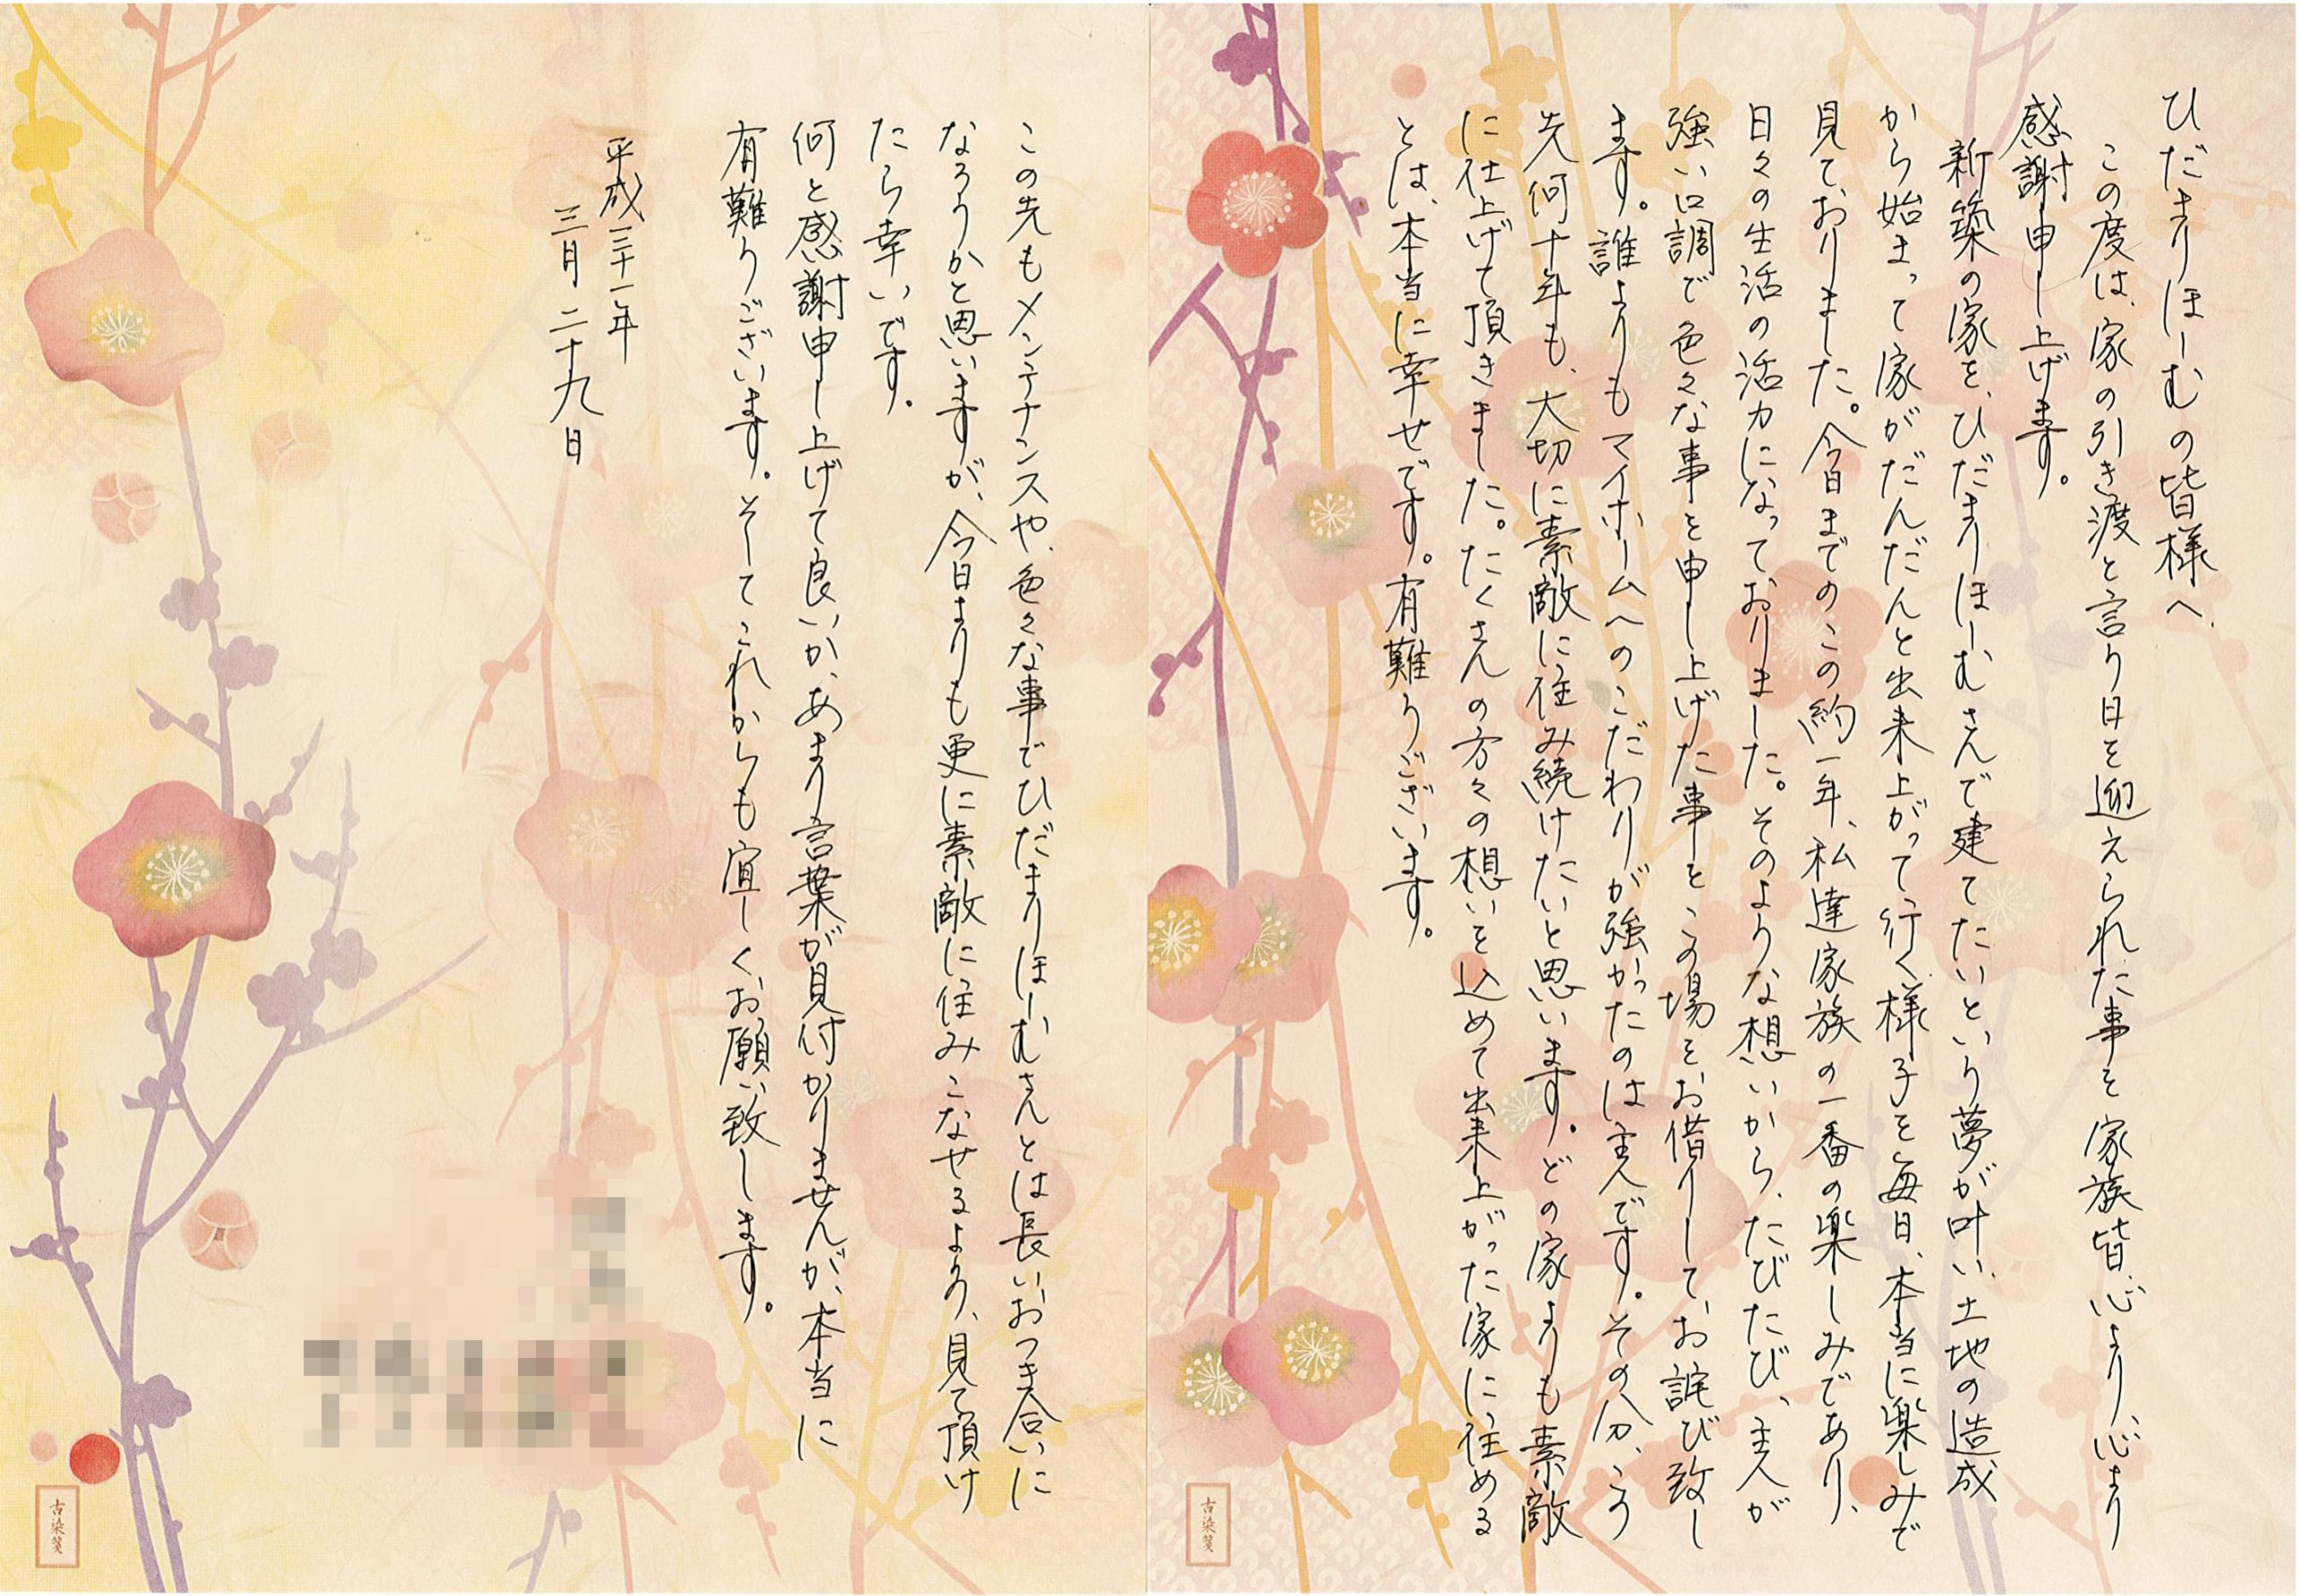 ひだまりほーむの皆様へ
この度は、家の引き渡と言う日を迎えられた事を家族皆、心より、心より
感謝申し上げます。
新築の家を、ひだまりほーむさんで建てたいという夢が叶い、土地の造成
から始まって家がだんだんと出来上がって行く様子を毎日、本当に楽しみで
見ておりました。今日までのこの約一年、私達家族の一番の楽しみであり、
日々の生活の活力になっておりました。そのような想いから、たびたび、主人が
強い口調で色々な事を申し上げた事をこの場をお借りしてお詫び致し
ます。誰よりもマイホームへのこだわりが強かったのは主人です。その分、こう
先何十年も、大切に素敵に住み続けたいと思います。どの家よりも素敵
に仕上げて頂きました。たくさんの方々の想いを込めて出来上がった家に住める
とは、本当に幸せです。有難うございます。
古染箋
この先もメンテナンスや、色々な事でひだまりほーむさんとは長いおつき合いに
なろうかと思いますが、今日よりも更に素敵に住みこなせるよう、見て頂け
たら幸いです。
何と感謝申し上げて良いか、あまり言葉が見付かりませんが、本当に
有難うございます。そしてこれからも宜しくお願い致します。
平成三十一年
三月二十九日
古染箋